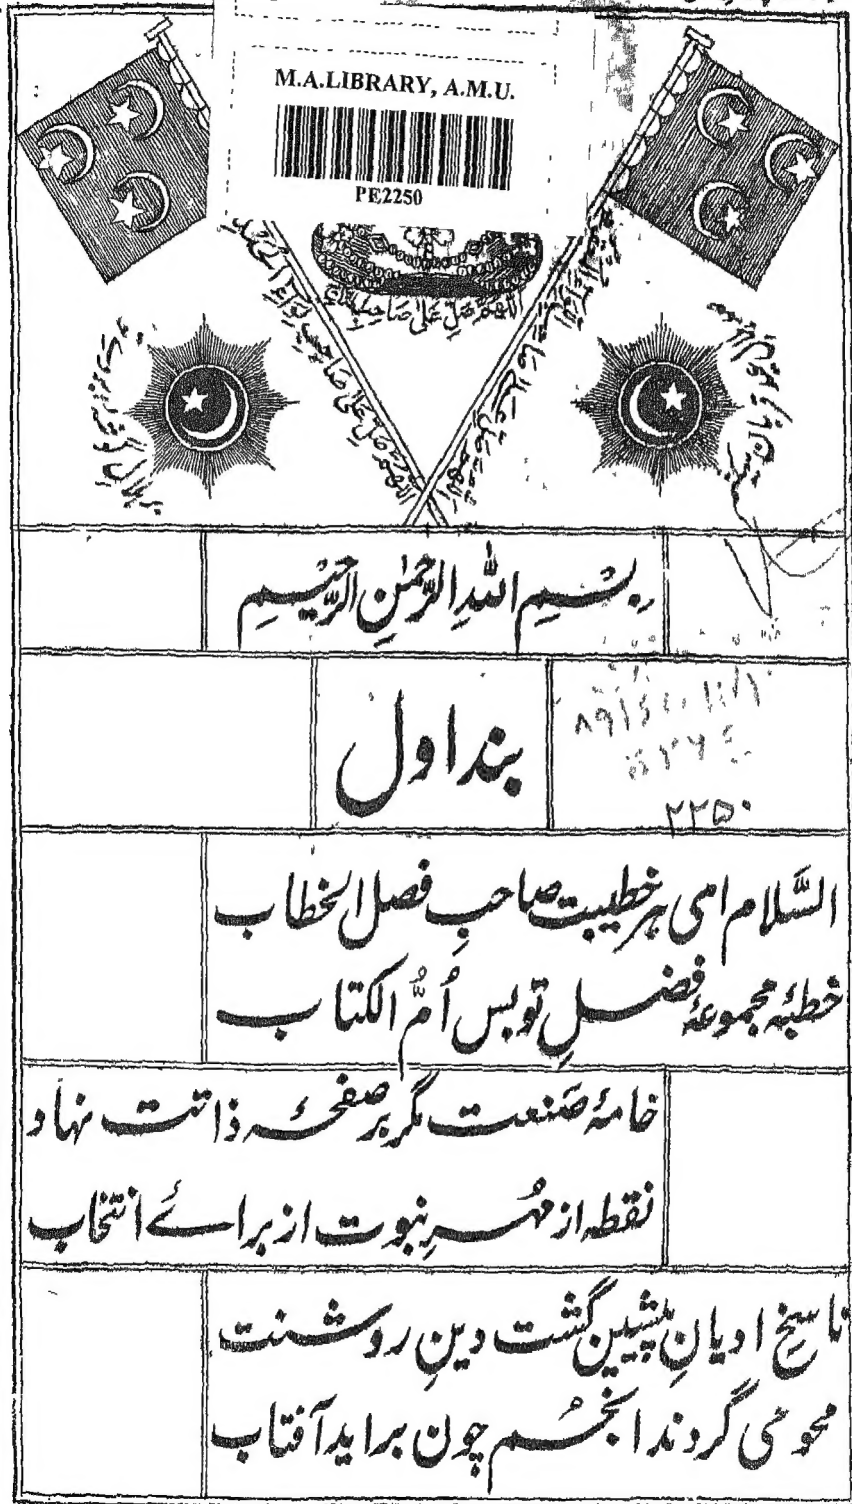 M.A.LIBRARY, A.M.U.
PE2250
اللهم صل على صاحب
اللهم صل على صاحب لواء الحمد
اللهم صل على صاحب
بِسْمِ اللهِ الرَّحْمٰنِ الرَّحِيْمِ
بند اول
۲۲۵۰
السَّلام ای هر خطیبت صاحبِ فصل الخطاب
خطبۂ مجموعۂ فضلِ تو بس اُمُّ الکتاب
خامۂ صَنعت مگر بر صفحۂ ذاتت نهاد
نقطه از مُهرِ نبوت از برائے انتخاب
ناسخِ ادیانِ پیشین گشت دینِ روشنت
محو می گردند انجُم چون براید آفتاب